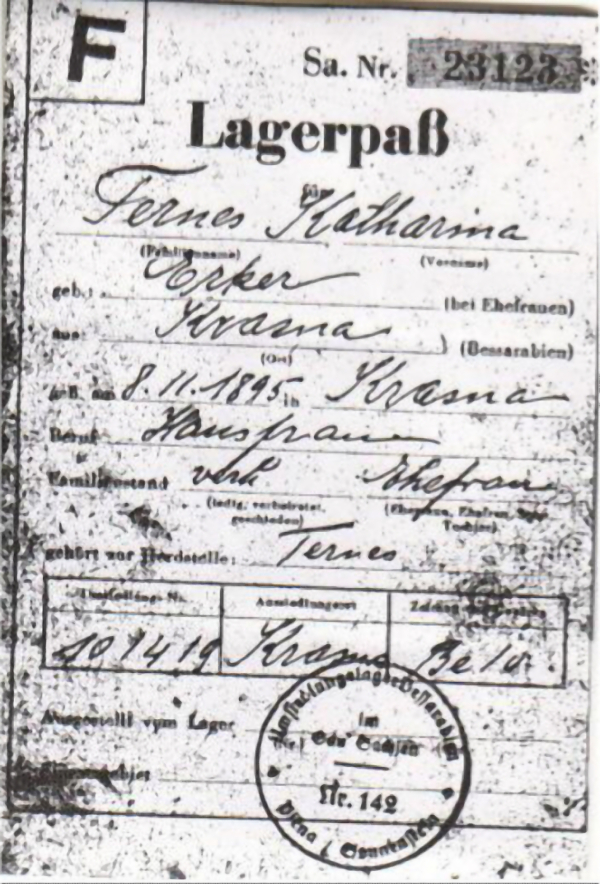 F
Sa. Nr. 23123
Lagerpaß
für
Ternes Katharina
(Familienname) (Vorname)
geb.: Erker (bei Ehefrauen)
aus Krasna (Bessarabien)
(Ort)
geb. am 8.11.1895 in Krasna
Beruf Hausfrau
Familienstand verh Ehefrau
(ledig, verheiratet, (Ehemann, Ehefrau, Sohn
geschieden) Tochter)
gehört zur Herdstelle: Ternes
Umsiedlungs-Nr. Aussiedlungsort
Krasna Be 10.
Ausgestellt vom Lager
Umsiedlungslager Bessarabien
im
Gau Sachsen
Nr. 142
Pirna / Sonnenstein